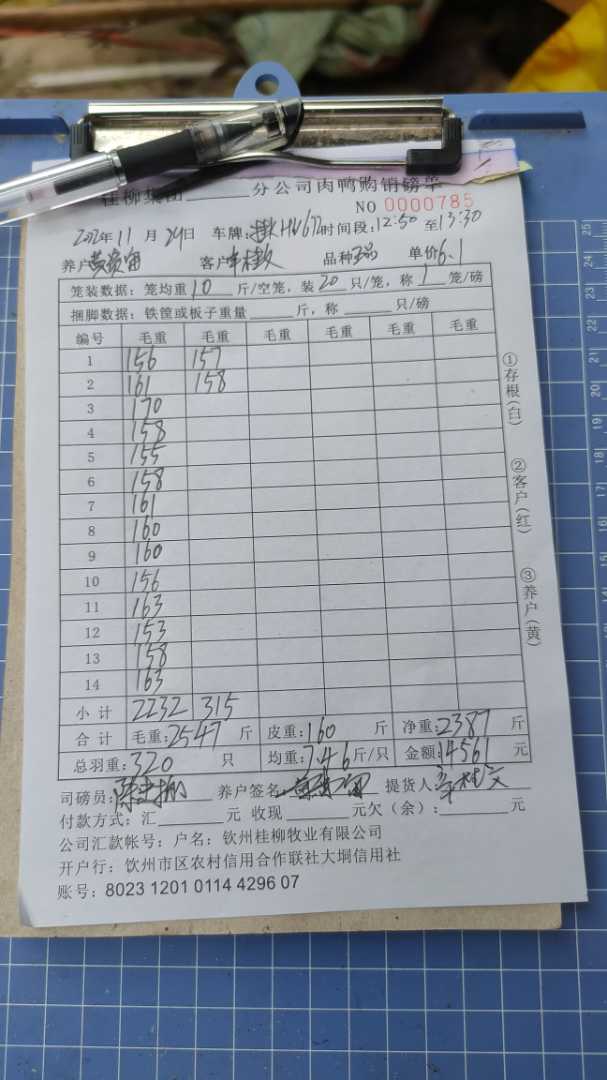 桂柳集团 分公司肉鸭购销磅单
NO 0000785
2022年11月29日 车牌: 时间段:12:50 至13:30
养户 客户 品种 单价6.1
笼装数据：笼均重10斤/空笼，装20只/笼，称1笼/磅
捆脚数据：铁筐或板子重量 斤，称 只/磅
编号 毛重 毛重 毛重 毛重 毛重
1 156 157
2 161 158
3 170
4 158
5 155
6 158
7 161
8 160
9 160
10 156
11 163
12 153
13 158
14 163
小计 2232 315
合计 毛重:2547斤 皮重:160斤 净重:2387斤
总羽重:320只 均重:7.46斤/只 金额:14561元
司磅员: 养户签名: 提货人:
付款方式：汇 元 收现 元欠（余）: 元
公司汇款帐号：户名：钦州桂柳牧业有限公司
开户行：钦州市区农村信用合作联社大垌信用社
账号：8023 1201 0114 4296 07
①存根(白)
②客户(红)
③养户(黄)
25
21
20
19
18
17
16
15